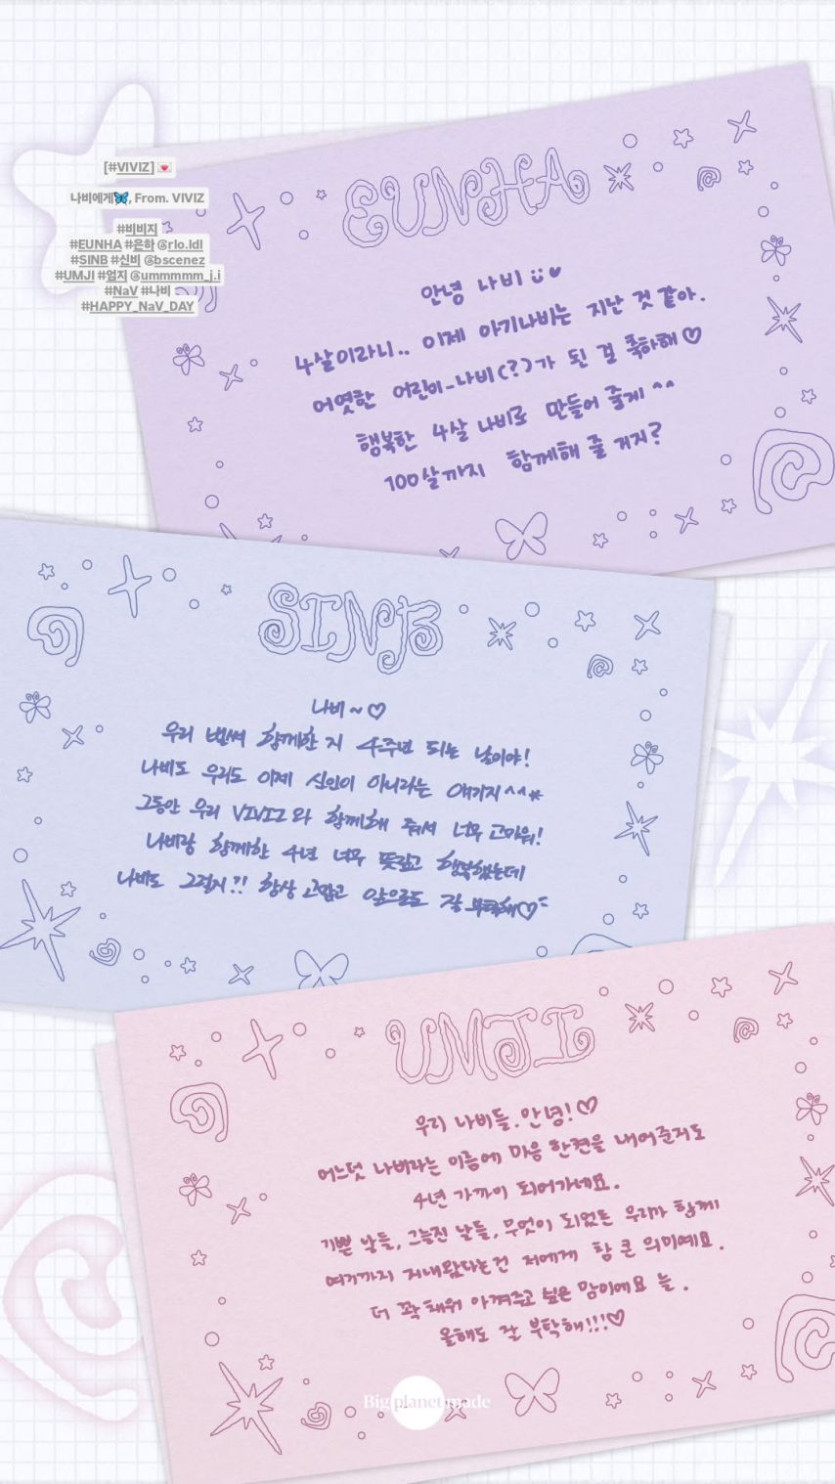 [#VIVIZ]💌
나비에게🦋, From. VIVIZ
#비비지
#EUNHA #은하 @rlo.ldl
#SINB #신비 @bscenez
#UMJI #엄지 @ummmmm_j.i
#NaV #나비
#HAPPY_NaV_DAY
EUNHA
안녕 나비 ü♥
4살이라니.. 이제 아기나비는 지난 것 같아.
어엿한 어린이-나비(?)가 된 걸 축하해♡
행복한 4살 나비로 만들어 줄게 ^^
100살까지 함께해 줄 거지?
SINB
나비~♡
우리 벌써 함께한 지 4주년 되는 날이야!
나비도 우리도 이제 신인이 아니라는 얘기지^^*
그동안 우리 VIVIZ와 함께해 줘서 너무 고마워!
나비랑 함께한 4년 너무 뜻깊고 행복했는데
나비도 그렇지?! 항상 고맙고 앞으로도 잘 부탁해♡
UMJI
우리 나비들. 안녕!♡
어느덧 나비라는 이름에 마음 한켠을 내어준지도
4년 가까이 되어가네요.
기쁜 날들, 그늘진 날들, 무엇이 되었든 우리가 함께
여기까지 지내왔다는건 저에게 참 큰 의미예요.
더 꽉 채워 아껴주고 싶은 맘이에요 늘.
올해도 잘 부탁해!!!♡
Bigplanetmade